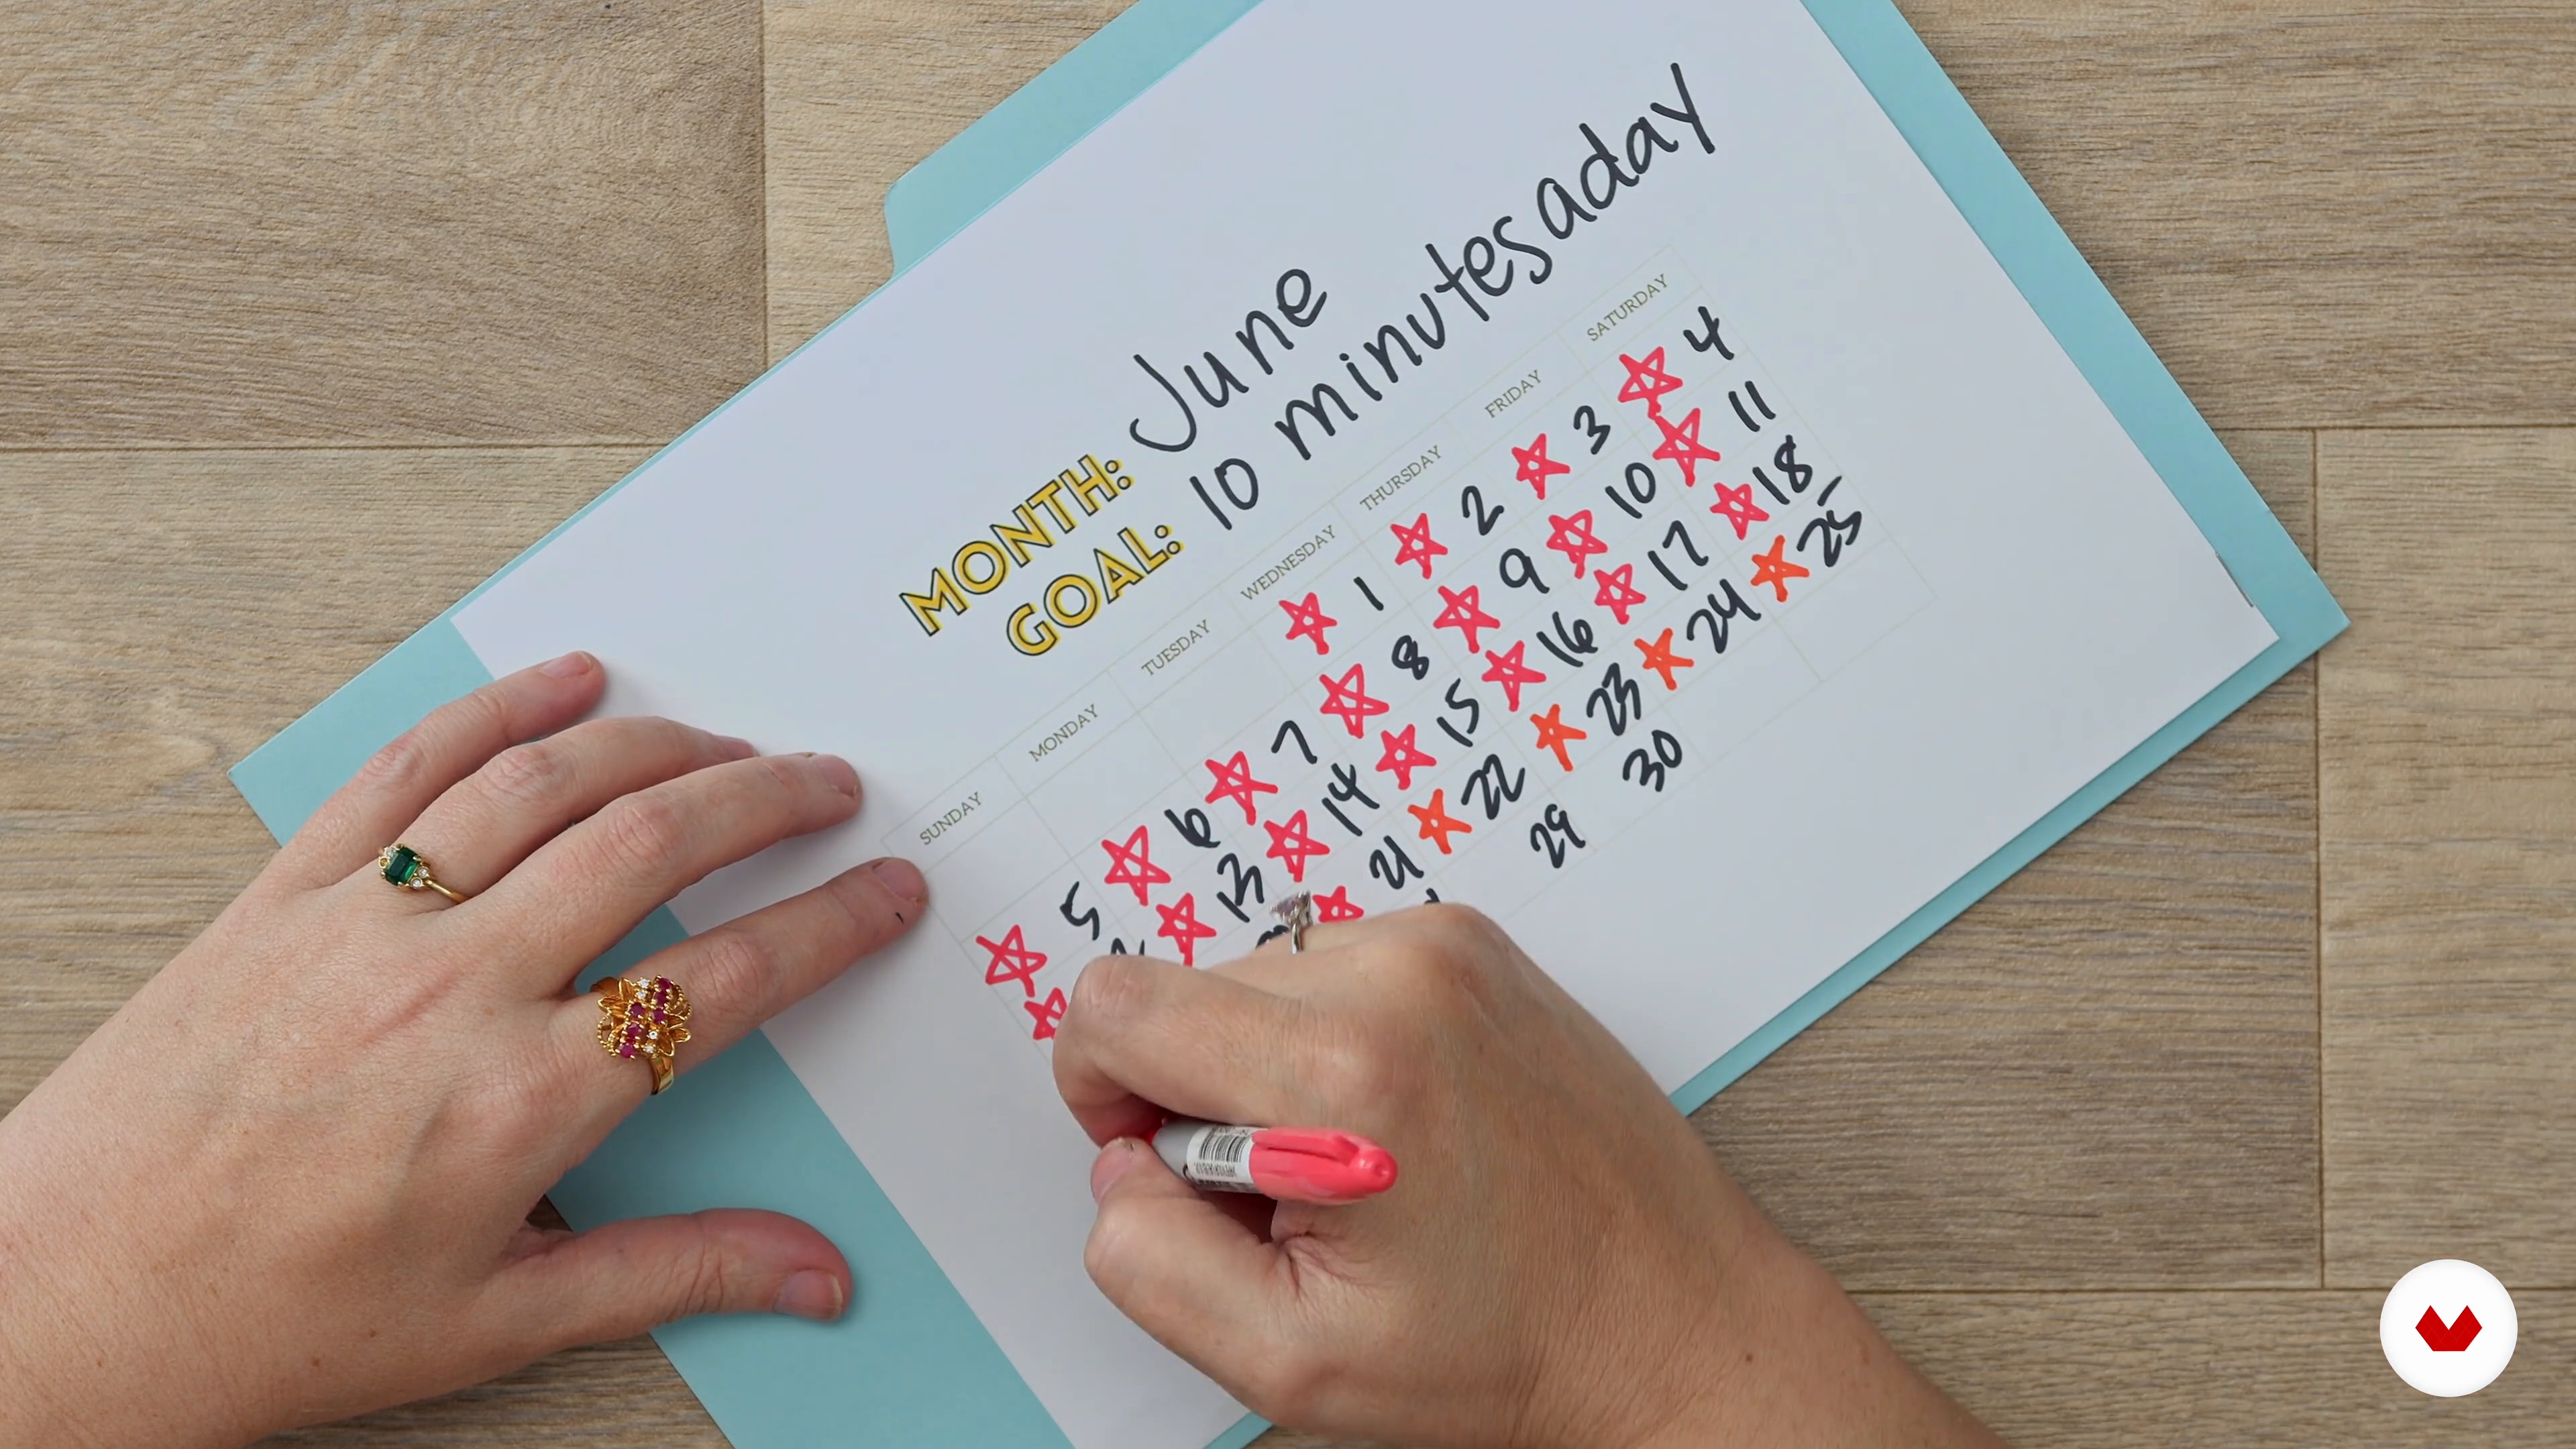 MONTH: June
GOAL: 10 minutes a day
SUNDAY MONDAY TUESDAY WEDNESDAY THURSDAY FRIDAY SATURDAY
1 2 3 4
5 6 7 8 9 10 11
13 14 15 16 17 18
21 22 23 24 25
29 30